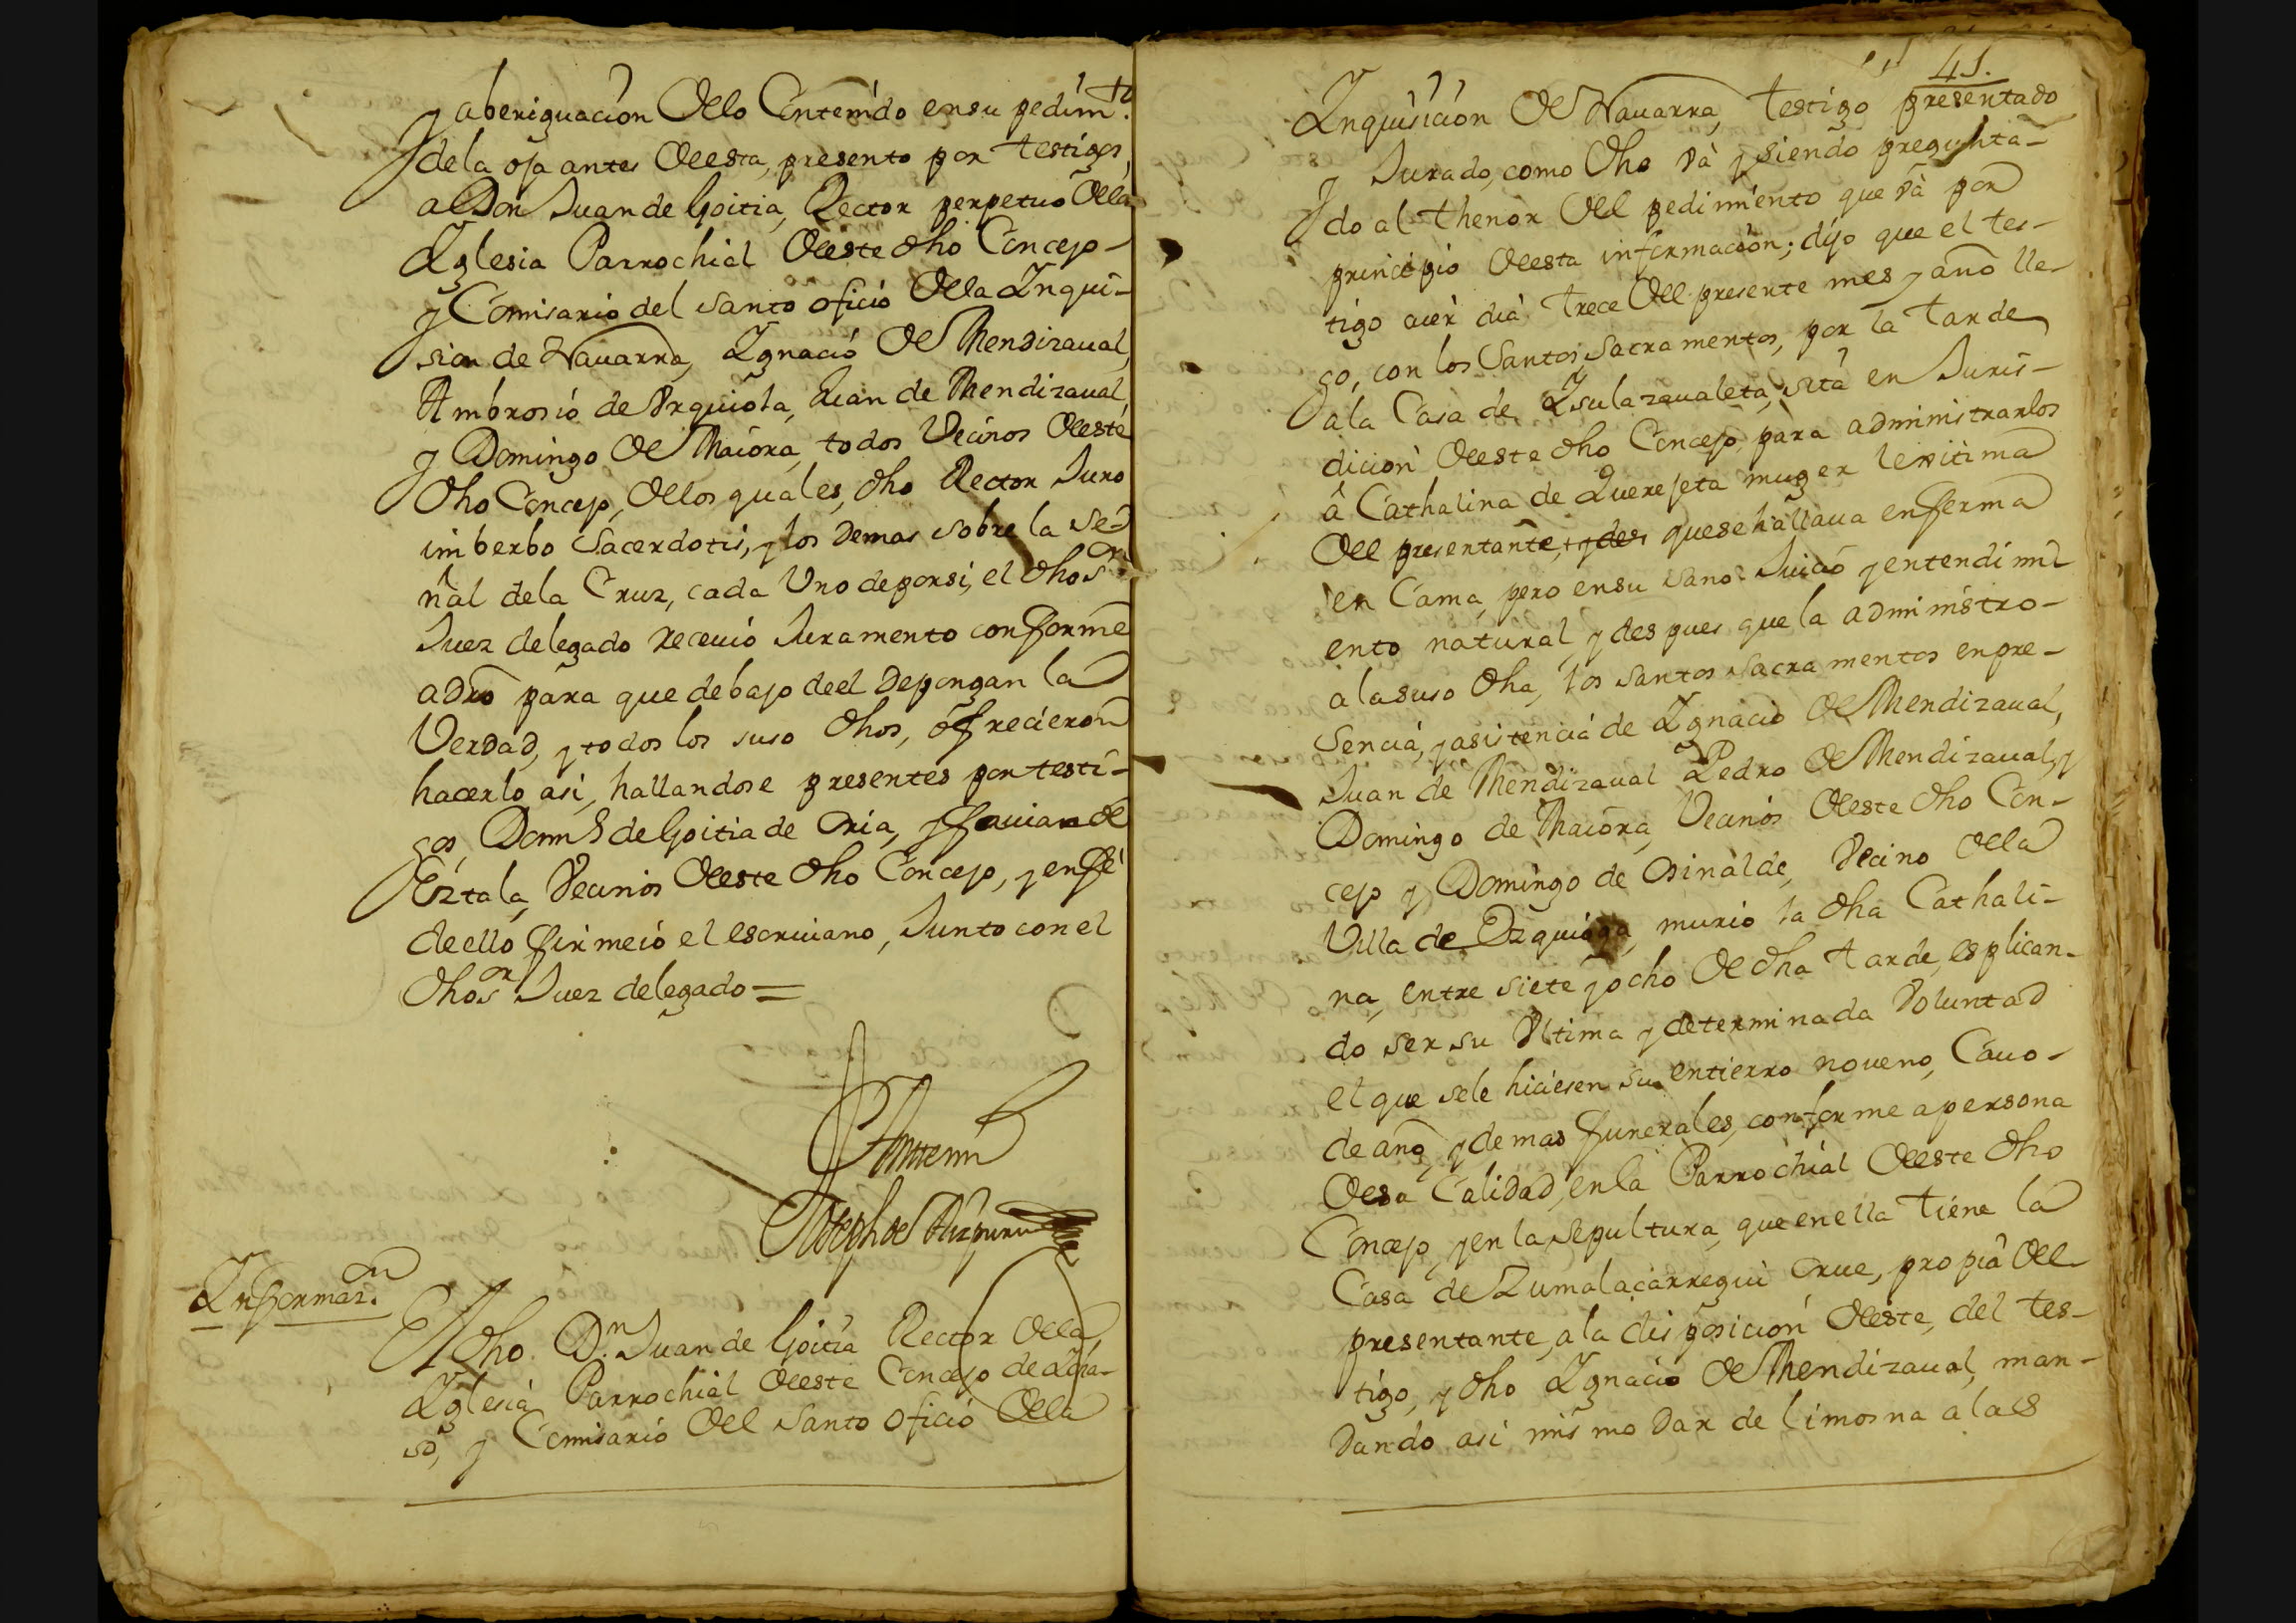 y aberiguacion dello Contenido en su pedim.to
de la oja antes de esta, presento por testigos
a Don Juan de Goitia, Rector perpetuo dela
Yglesia Parrochial deeste dho Concejo
y Comisario del santo oficio dela Ynqui-
sion de Nauarra, Ygnacio de Mendizaual,
Ambrosio de Vrquiola, Juan de Mendizaual
y Domingo de Maiora, todos Vecinos deeste
dho Concejo, delos quales, dho Rector Juro
im berbo Sacerdotis, y los demas sobre la se-
ñal dela Cruz, cada Uno de por si, el dho S.r
Juez delegado receuió Juramento conforme
a dro para que debajo deel depongan la
Verdad, y todos los suso dhos, ofrecieron
hacerlo asi, hallandose presentes por testi-
gos, Domin.o de Goitia de Oria, y Fauian de
Eztala, Vecinos deeste dho Concejo, y en fé
de ello firme ió el escriuano, Junto con el
dho S.or Juez delegado =
Ante mi
Joseph de Aizpuru
Informaz.n
El dho D.n Juan de Goitia Rector dela
Yglesia Parrochial deeste Concejo de Ydia-
so, y Comisario del santo oficio dela
41.
Ynquisicion de Nauarra, testigo presentado
y Jurado, como dho vá y siendo pregunta-
do al thenor del pedimiento que vá por
principio deesta informacion; dijo que el tes-
tigo aier dia trece del presente mes y año lle-
go, con los Santos Sacramentos, por la tarde
a la Casa de Ysulazaualeta, sita en Juris-
dicion deeste dho Concejo, para administrarlos
â Cathalina de Querejeta muger lexitima
del presentante, y des que se hallaua enferma
en Cama, pero en su sano Juicio y entendimi
ento natural, y des pues que la administro
a la suso dha, los santos sacramentos en pre-
sencia, y asistencia de Ygnacio de Mendizaual,
Juan de Mendizaual Pedro de Mendizaual, y
Domingo de Maiora, Vecinos deeste dho Con-
cejo y Domingo de Osinalde, Vecino dela
Villa de Ezquioga, murio la dha Cathali-
na, entre siete y ocho de dha tarde, esplican-
do ser su Vltima y determinada Voluntad
el que sele hiciesen su entierro noueno, Cauo-
de año, y demas funerales, conforme a persona
desa Calidad, en la Parrochial deeste dho
Concejo, y en la sepultura, que en ella tiene la
Casa de Zumalacarregui Orue, propia del
presentante, a la disposicion deeste, del tes-
tigo, y dho Ygnacio de Mendizaual, man-
dando asi mis mo dar de limosna a las